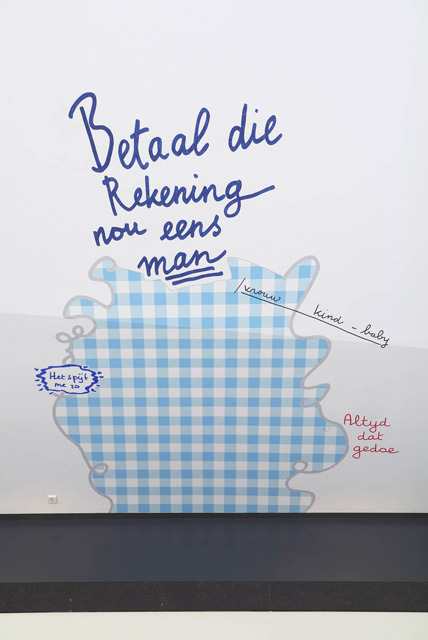 Betaal die
Rekening
nou eens
man
/vrouw kind - baby
Het spijt
me zo
Altyd
dat
gedoe